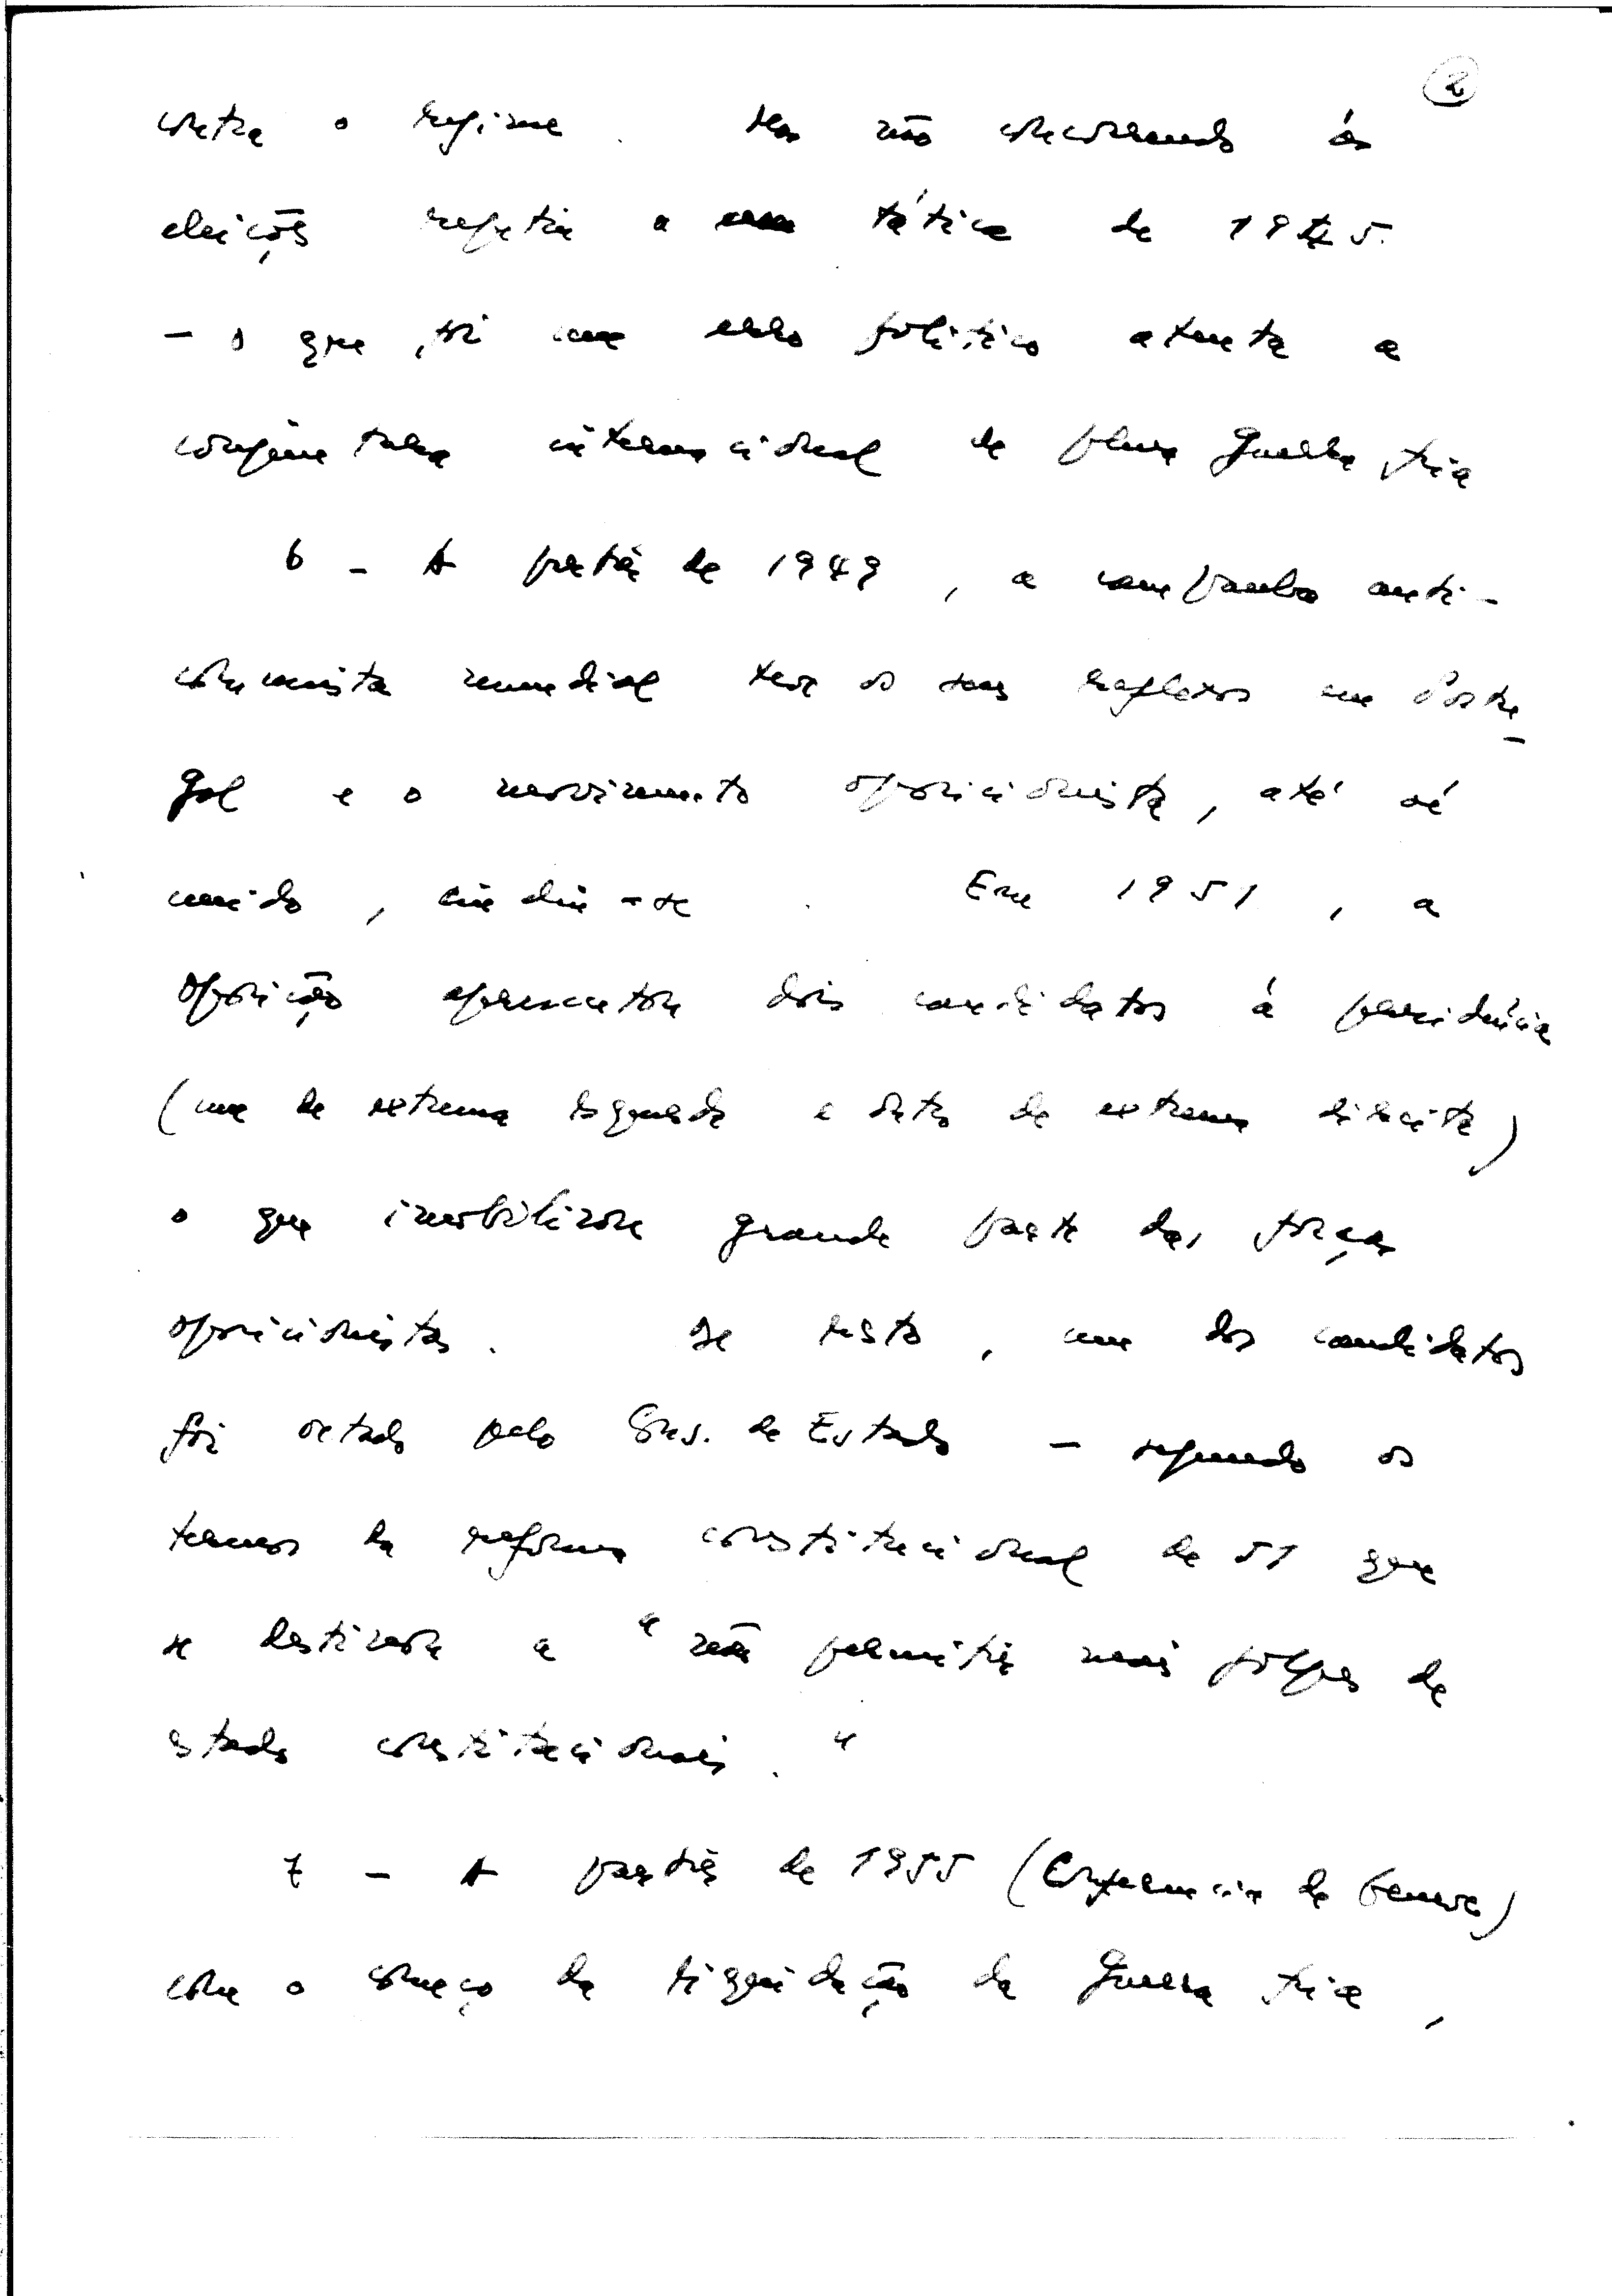 2
contra o regime. Mas não concorrendo ás
eleições repetia a tática de 1945.
- o que foi um erro político atenta a
conjuntura internacional de plena guerra fria
6 - A partir de 1949, a campanha anti-
comunista mundial teve os seus reflexos em Portu-
gal e o movimento oposicionista, até aí
unido, cindiu-se. Em 1951, a
oposição apresentou dois candidatos á presidência
(um de extrema esquerda e outro de extrema direita)
o que imobilizou grande parte das forças
oposicionistas. De resto, um dos candidatos
foi vetado pelo Cons. de Estado - segundo os
termos da reforma constitucional de 51 que
se destinava a "não permitir mais golpes de
estado constitucionais."
7 - A partir de 1955 (Conferencia de Geneve)
com o começo da liquidação da guerra fria,